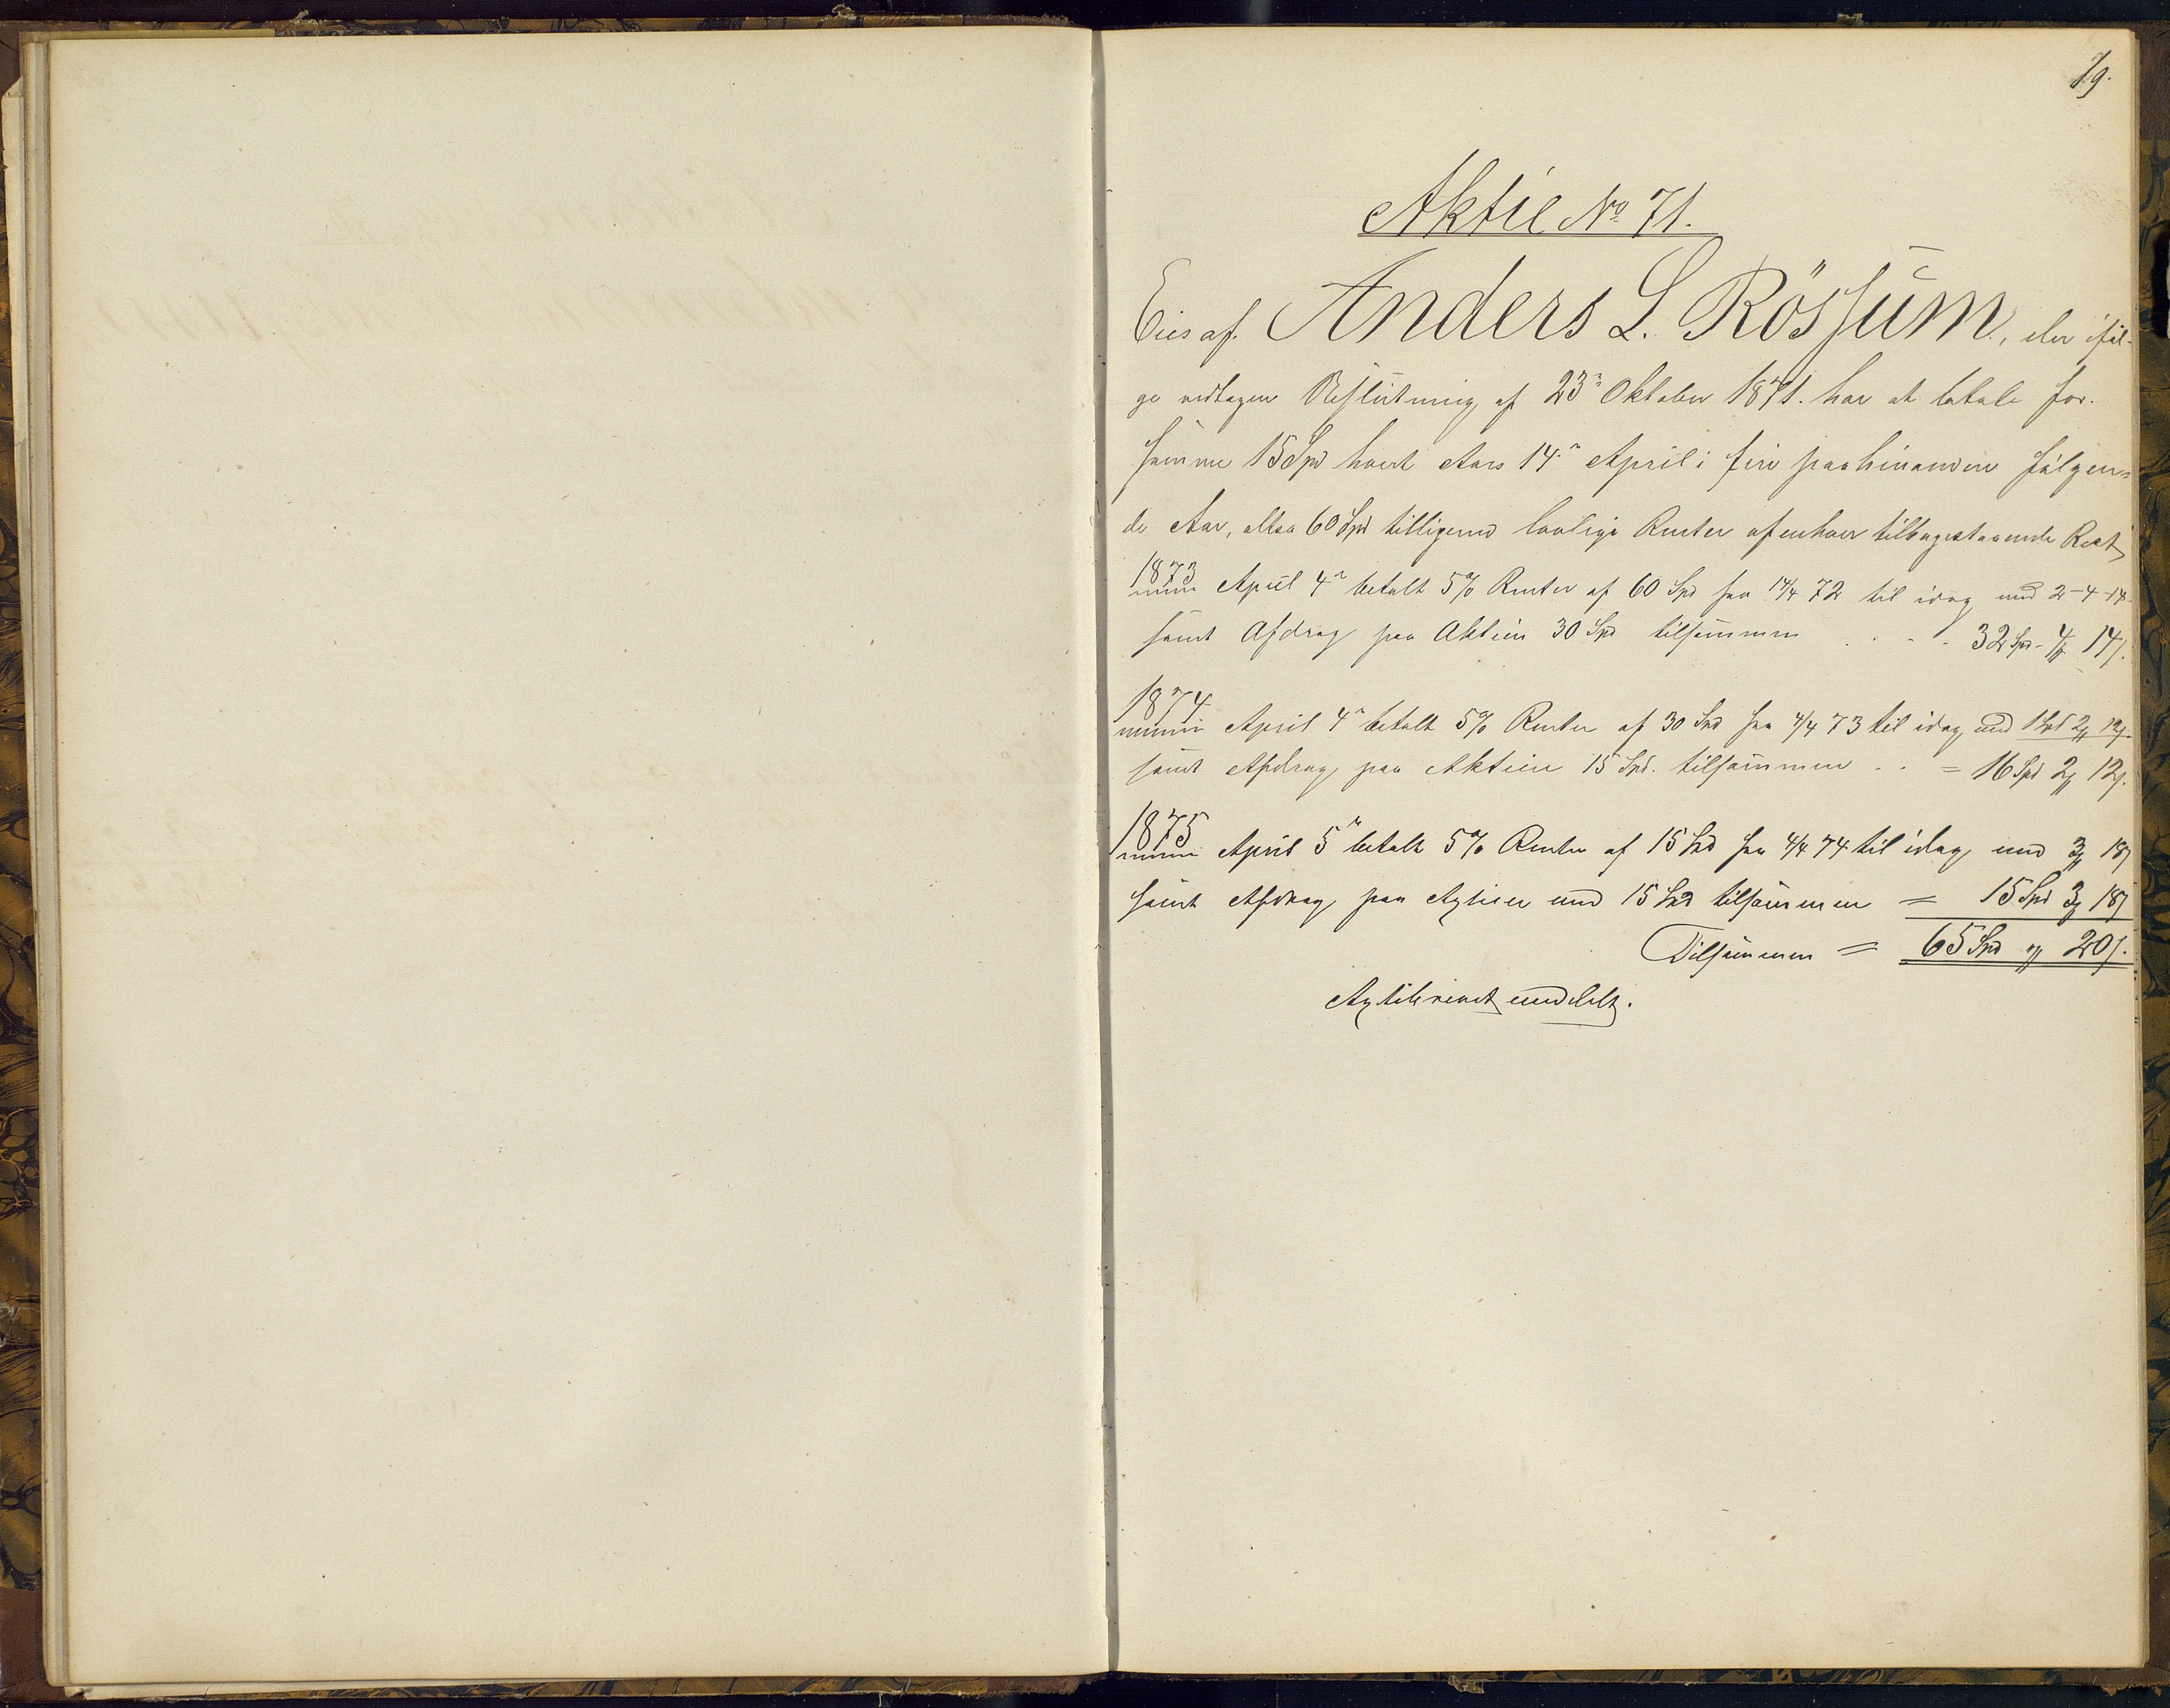 19.
Aktie No 71.
Eies af Anders L. Rössum, der iföl-
ge vedtagen Beslutning af 23n Oktober 1871. har at betale for
samme 15 Spd hvert Aars 14n April i fire paahinanden fölgen=
de Aar, altsaa 60 Spd tilligemed lovlige Renter af enhver tilbagestaaende Rest,
1873
April 4n betalt 5% Renter af 60 Spd fra 14/4 72 til idag med 2-4-14
samt Afdrag paa Aktien 30 Spd tilsammen . . . 32 Spd - 4 14
1874
April 4n betalt 5% Renter af 30 Spd fra 4/4 73 til idag med 1 Spd 2 12
samt Afdrag paa Aktien 15 Spd. tilsammen . . = 16 Spd 2 12
1875
April 5n betalt 5% Renter af 15 Spd fra 4/4 74 til idag med 3 18
samt Afdrag paa Aktien med 15 Spd tilsammen = 15 Spd 3 18
Tilsammen = 65 Spd " 20
Aktiebrevet meddelt.